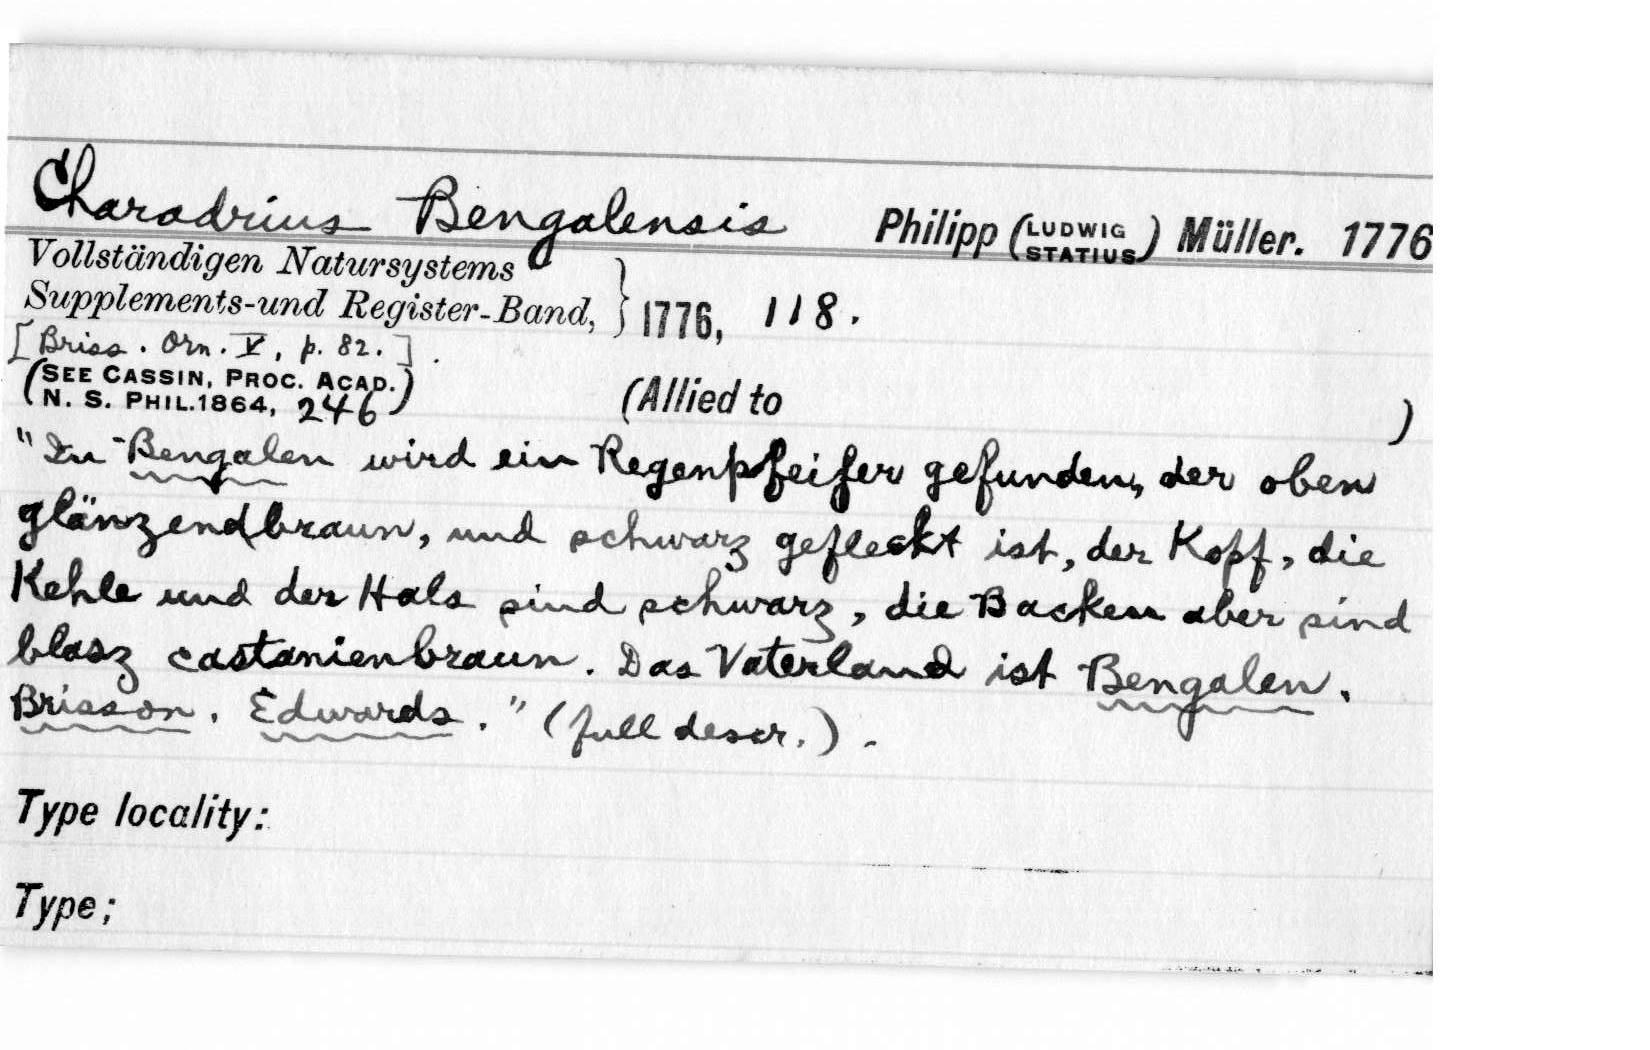 Charadrius Bengalensis Philipp (LUDWIG STATIUS) Müller. 1776
Vollständigen Natursystems
Supplements-und Register-Band, } 1776, 118.
[Briss. Orn. V, p. 82.].
(SEE CASSIN, PROC. ACAD.
N. S. PHIL.1864, 246) (Allied to )
"In Bengalen wird ein Regenpfeifer gefunden, der oben
glänzendbraun, und schwarz gefleckt ist, der Kopf, die
Kehle und der Hals sind schwarz, die Backen aber sind
blasz castanienbraun. Das Vaterland ist Bengalen.
Brisson. Edwards." (full descr.).
Type locality:
Type;